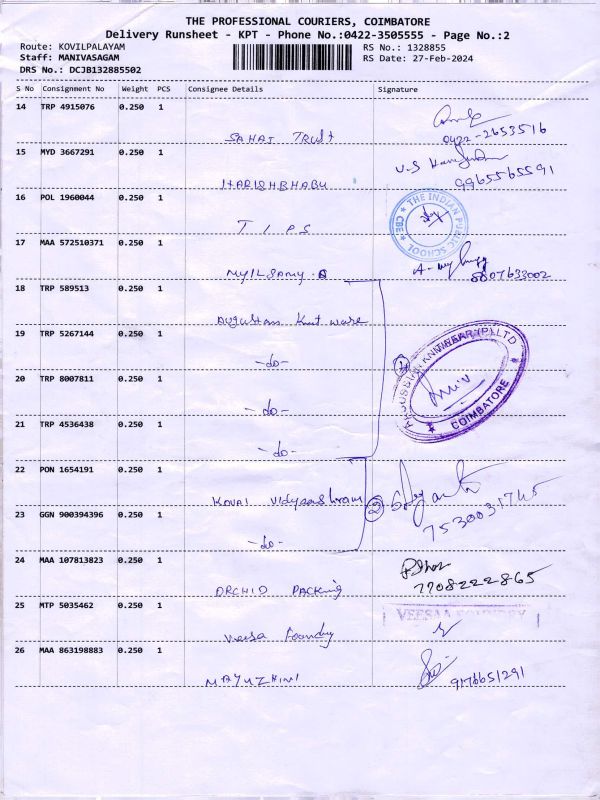 THE PROFESSIONAL COURIERS, COIMBATORE
Delivery Runsheet - KPT - Phone No.:0422-3505555 - Page No.:2
Route: KOVILPALAYAM
RS No.: 1328855
Staff: MANIVASAGAM
RS Date: 27-Feb-2024
DRS No.: DCJB132885502
S No Consignment No Weight PCS Consignee Details Signature
14 TRP 4915076 0.250 1
SAHAJ Trust 0422-2653516
15 MYD 3667291 0.250 1 U-S
HARISHBHABU 9965565591
16 POL 1960044 0.250 1
T I P S
THE INDIAN PUBLIC SCHOOL
CBE
17 MAA 572510371 0.250 1
MYILSAMY 8807633002
18 TRP 589513 0.250 1
Augustan Knit ware
19 TRP 5267144 0.250 1
-do-
20 TRP 8007811 0.250 1
-do-
21 TRP 4536438 0.250 1
-do-
4
KNITWEAR (P) LTD
COIMBATORE
22 PON 1654191 0.250 1
KOVAI Vidyaashram 2
7530031745
23 GGN 900394396 0.250 1
-do-
24 MAA 107813823 0.250 1
ORCHID PACKing 7708222865
25 MTP 5035462 0.250 1
VEESAA FOUNDRY
Veesa Foundry
26 MAA 863198883 0.250 1
MAYUZHINI 9176651291